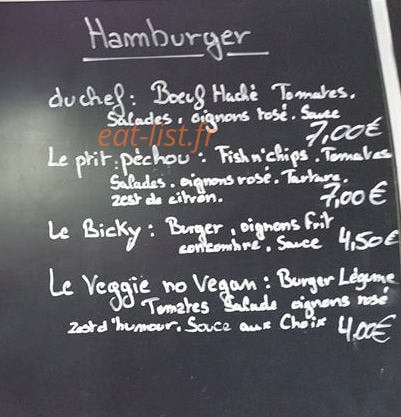 Hamburger
du chef : Bœuf Haché Tomates.
Salades, oignons rosé. Sauce
eat-list.fr
7,00€
Le ptit pêchou : Fish n'chips. Tomates
Salades. oignons rosé. Tartare.
zest de citron. 7,00€
Le Bicky : Burger, oignons frit
concombre, Sauce 4,50€
Le Veggie no Vegan : Burger Légume
Tomates Salade oignons rosé
zest d'humour. Sauce aux Choix 4,00€